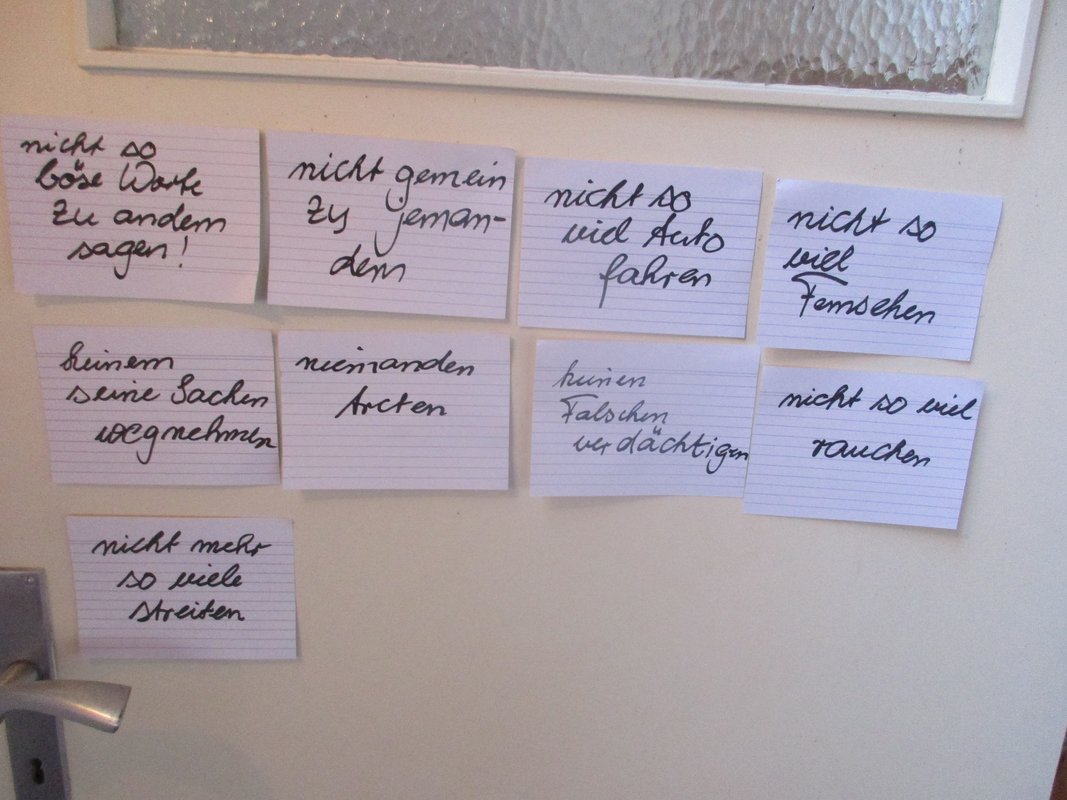 nicht so
böse Worte
zu andern
sagen!
nicht gemein
zu jeman-
dem
nicht so
viel Auto
fahren
nicht so
viel
Fernsehen
keinem
seine Sachen
wegnehmen
niemanden
treten
keinen
Falschen
verdächtigen
nicht so viel
rauchen
nicht mehr
so viele
streiten